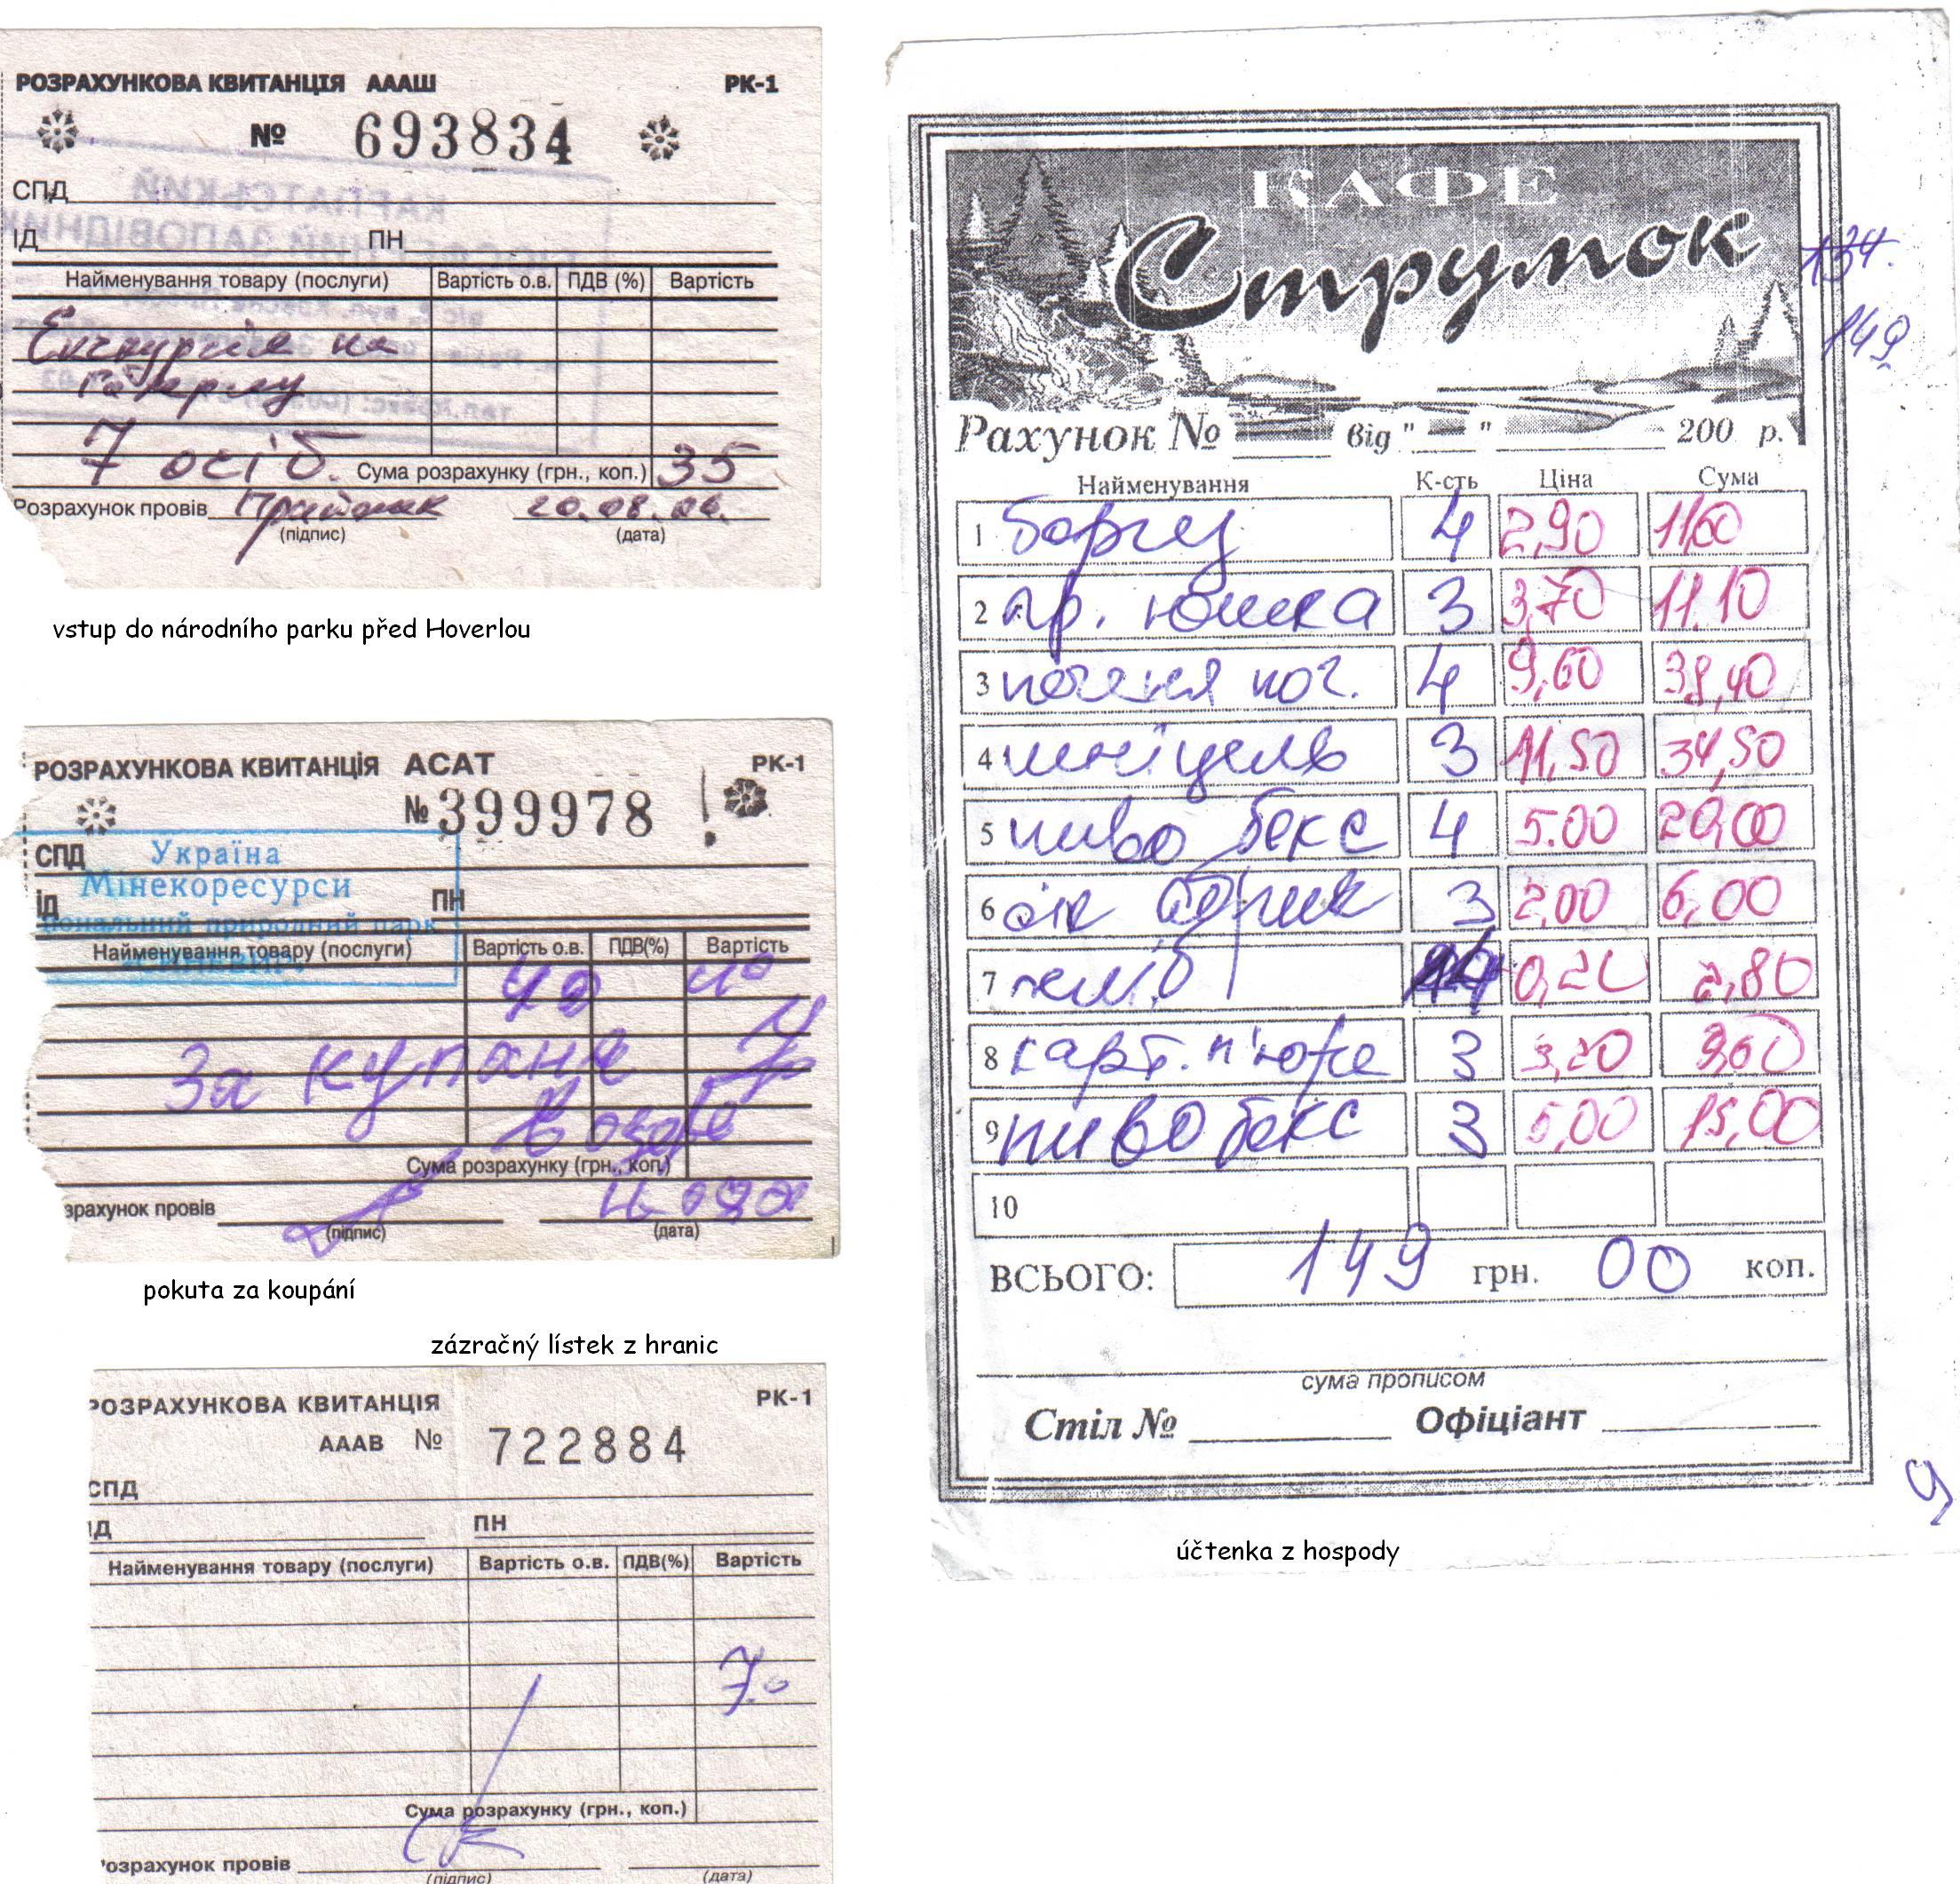 РОЗРАХУНКОВА КВИТАНЦІЯ АААШ РК-1
№ 693834
КАРПАТСЬКИЙ
СПД
ІД ПН
Найменування товару (послуги) Вартість о.в. ПДВ (%) Вартість
Екскурсія на
Говерлу
7 осіб. Сума розрахунку (грн., коп.) 35
Розрахунок провів 20.08.06.
(підпис) (дата)
vstup do národního parku před Hoverlou
РОЗРАХУНКОВА КВИТАНЦІЯ АСАТ РК-1
№ 399978
СПД Україна
Мінекоресурси
ІД ПН
національний природний парк
Найменування товару (послуги) Вартість о.в. ПДВ(%) Вартість
40 40
За купане
в озере
Сума розрахунку (грн., коп.)
зрахунок провів
(підпис) (дата)
pokuta za koupání
zázračný lístek z hranic
РОЗРАХУНКОВА КВИТАНЦІЯ РК-1
АААВ № 722884
СПД
ІД ПН
Найменування товару (послуги) Вартість о.в. ПДВ(%) Вартість
7.0
Сума розрахунку (грн., коп.)
Розрахунок провів
(підпис) (дата)
КАФЕ
Струмок
134.
149
Рахунок № від " " 200 р.
Найменування К-сть Ціна Сума
1 борщ 4 2,90 11,60
2 гр. юшка 3 3,70 11.10
3 печеня 4 9,60 38,40
4 шніцель 3 11,50 34,50
5 пиво бекс 4 5.00 20,00
6 сік 3 2,00 6,00
7 хліб 14 0,20 2,80
8 карт. п'юре 3 3,20 9,60
9 пиво бекс 3 5,00 15,00
10
ВСЬОГО: 149 грн. 00 коп.
сума прописом
Стіл № Офіціант
účtenka z hospody